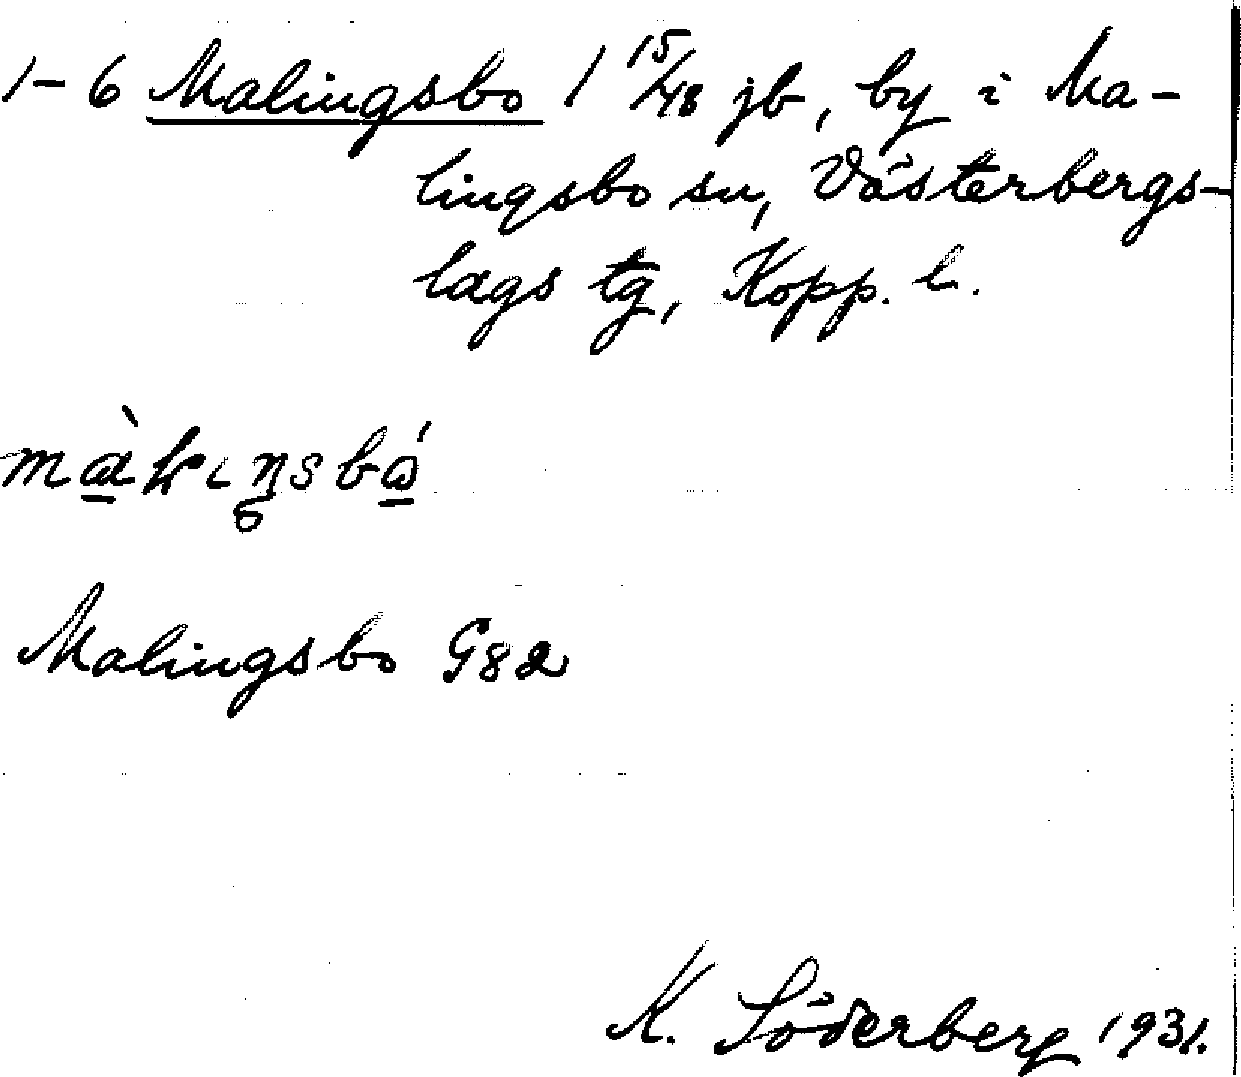 1-6 Malingsbo 1 15/48 jb, by i Ma-
lingsbo sn, Västerbergs-
lags tg, Kopp. l.
Malingsbo G82
K. Söderberg 1931.